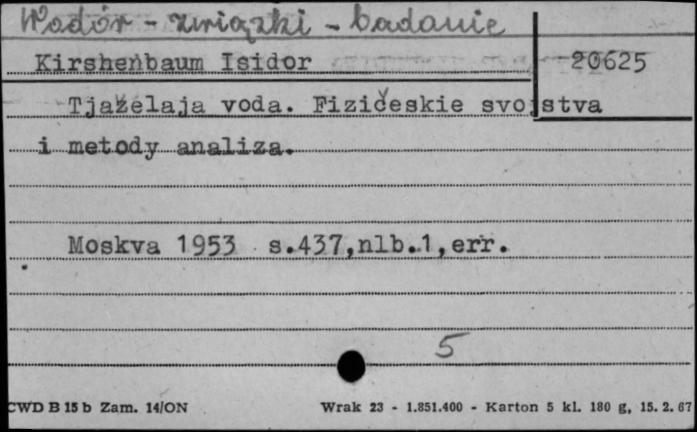 Wodór - związki - badanie
Kirshenbaum Isidor 20625
Tjaželaja voda. Fizičeskie svojstva
i metody analiza.
Moskva 1953 s.437,nlb.1,err.
5
CWD B 15 b Zam. 14/ON Wrak 23 - 1.851.400 - Karton 5 kl. 180 g, 15. 2. 67